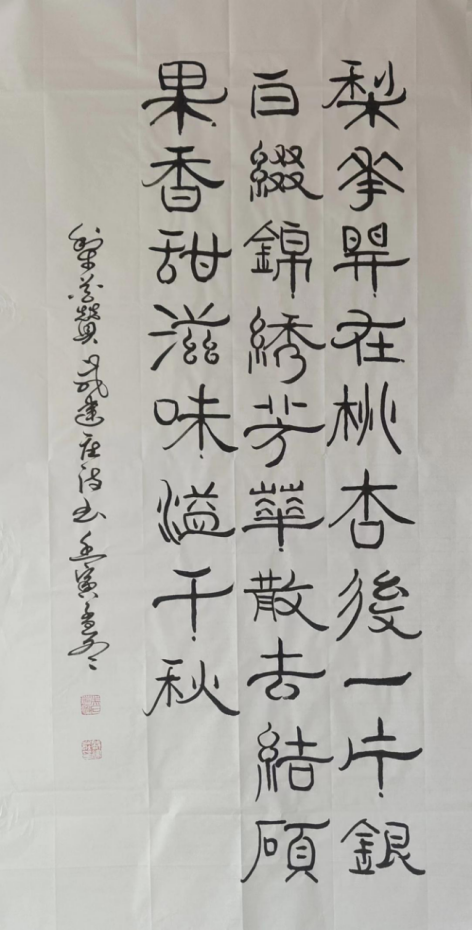 梨花開在桃杏後一片銀
白綴錦綉芳華散去結碩
果香甜滋味溢千秋
梨花贊 書壬寅冬